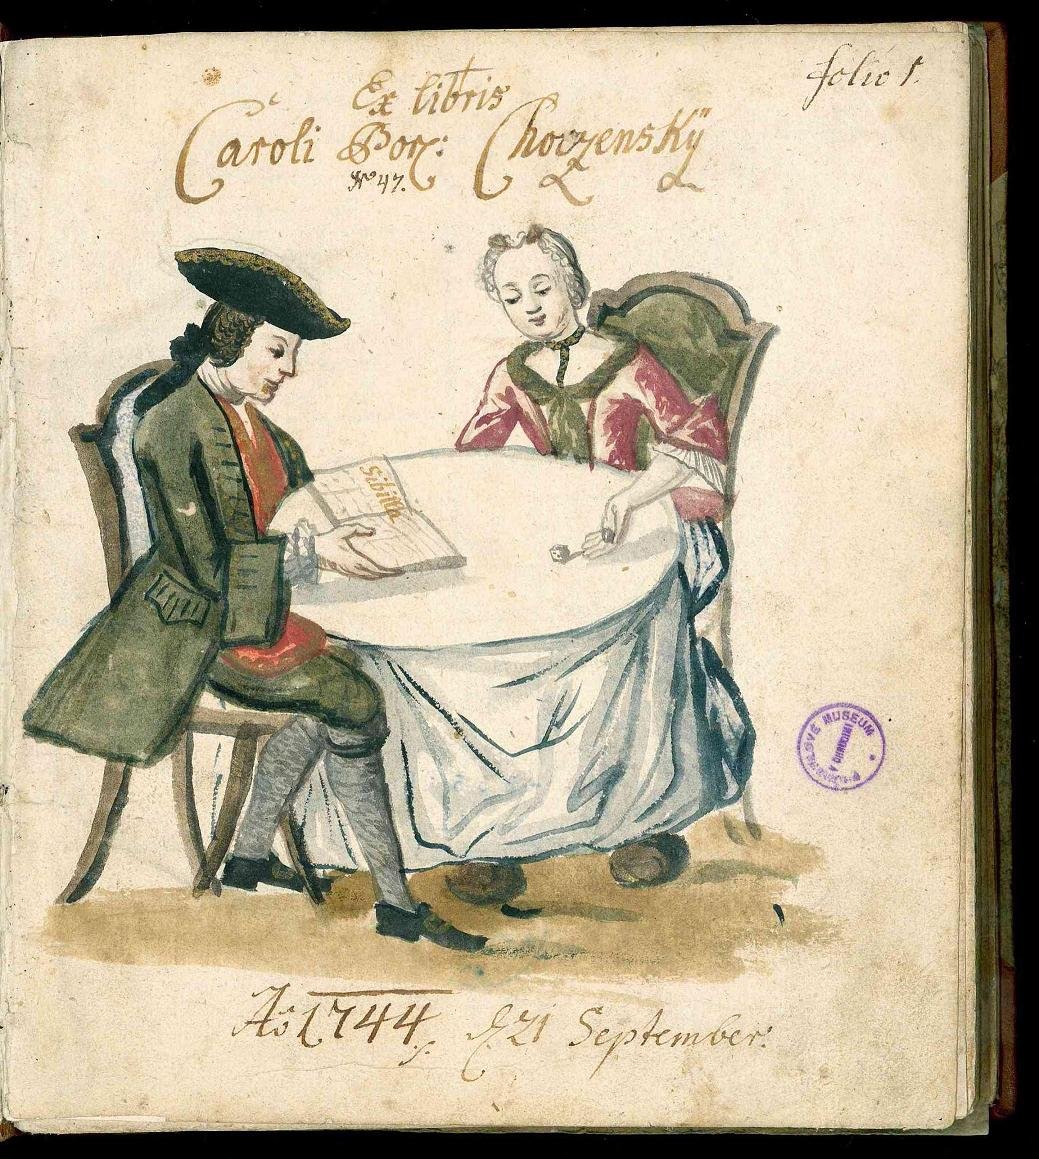 folio 1.
Ex libris
Caroli Choczenskÿ
No 47.
Sibilla
MUSEUM
Ao 1744 21 September: